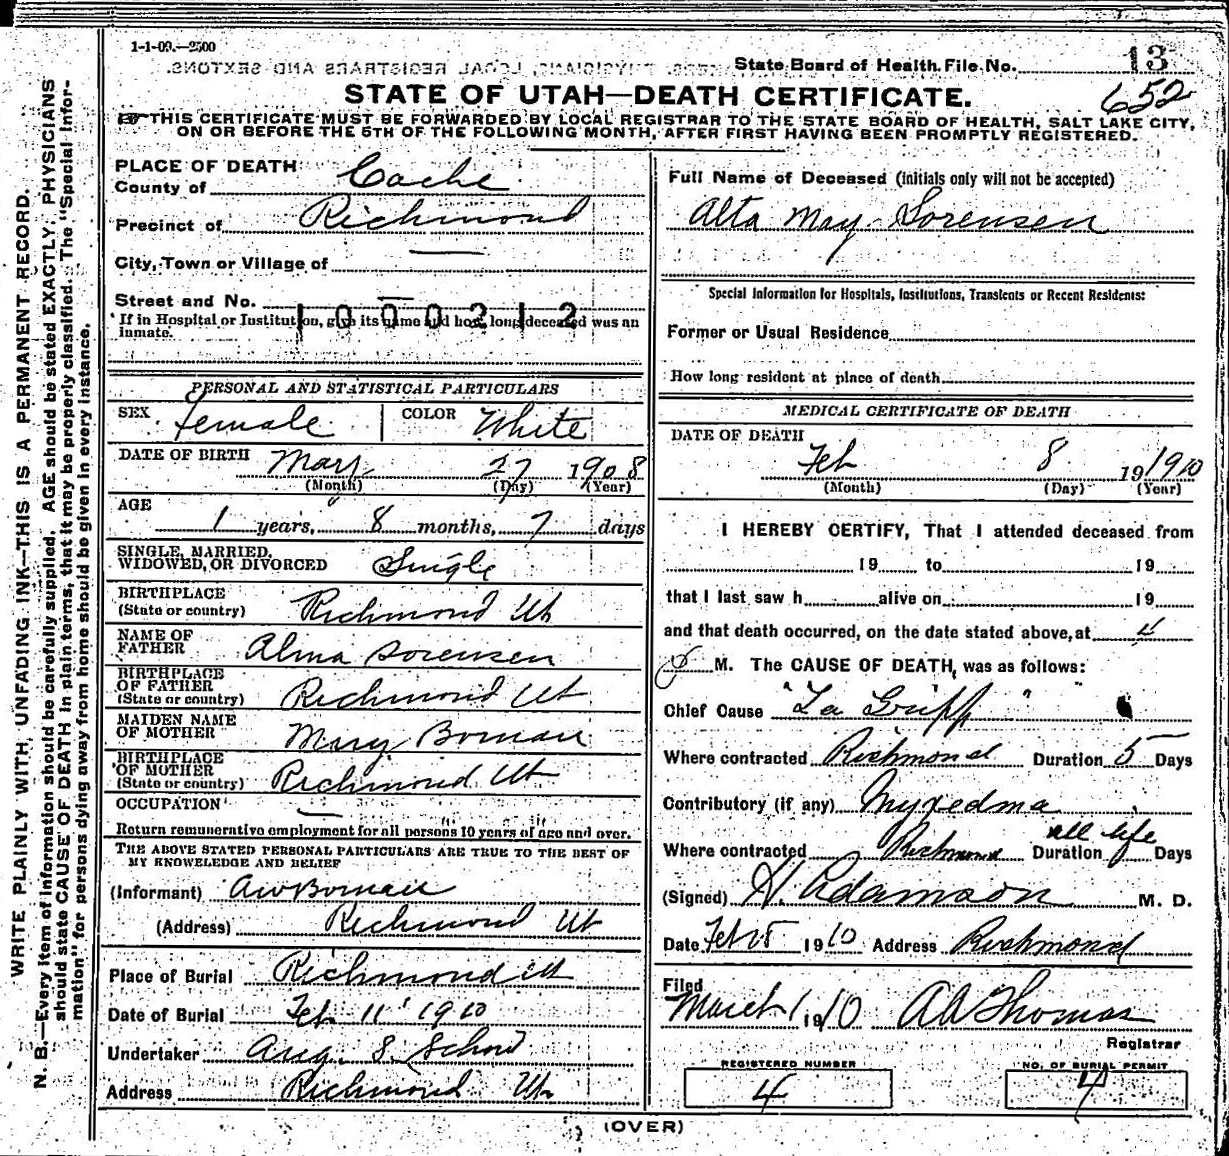 1-1-09.—2500
PHYSICIANS, LOCAL REGISTRARS AND SEXTONS.
State Board of Health File No. 13
652
STATE OF UTAH—DEATH CERTIFICATE.
THIS CERTIFICATE MUST BE FORWARDED BY LOCAL REGISTRAR TO THE STATE BOARD OF HEALTH, SALT LAKE CITY,
ON OR BEFORE THE 5TH OF THE FOLLOWING MONTH, AFTER FIRST HAVING BEEN PROMPTLY REGISTERED.
WRITE PLAINLY WITH UNFADING INK—THIS IS A PERMANENT RECORD.
N. B.—Every item of information should be carefully supplied. AGE should be stated EXACTLY. PHYSICIANS
should state CAUSE OF DEATH in plain terms, that it may be properly classified. The "Special Infor-
mation" for persons dying away from home should be given in every instance.
PLACE OF DEATH
County of Cache
Precinct of Richmond
City, Town or Village of —
Street and No. —
1000212
* If in Hospital or Institution, give its name and how long deceased was an
inmate.
PERSONAL AND STATISTICAL PARTICULARS
SEX Female COLOR White
DATE OF BIRTH May 27 1908
(Month) (Day) (Year)
AGE
1 years, 8 months, 7 days
SINGLE, MARRIED,
WIDOWED, OR DIVORCED Single
BIRTHPLACE
(State or country) Richmond Ut
NAME OF
FATHER Alma Sorensen
BIRTHPLACE
OF FATHER
(State or country) Richmond Ut
MAIDEN NAME
OF MOTHER Mary Boman
BIRTHPLACE
OF MOTHER
(State or country) Richmond Ut
OCCUPATION —
Return remunerative employment for all persons 10 years of age and over.
THE ABOVE STATED PERSONAL PARTICULARS ARE TRUE TO THE BEST OF
MY KNOWELEDGE AND BELIEF
(Informant) AW Boman
(Address) Richmond Ut
Place of Burial Richmond Ut
Date of Burial Feb 11 1910
Undertaker Aug. S. Schow
Address Richmond Ut
Full Name of Deceased (initials only will not be accepted)
Alta May Sorensen
Special Information for Hospitals, Institutions, Transients or Recent Residents:
Former or Usual Residence
How long resident at place of death
MEDICAL CERTIFICATE OF DEATH
DATE OF DEATH
Feb 8 19 1910
(Month) (Day) (Year)
I HEREBY CERTIFY, That I attended deceased from
19 to 19
that I last saw h alive on 19
and that death occurred, on the date stated above, at 4
P M. The CAUSE OF DEATH, was as follows:
Chief Cause "La Gripp"
Where contracted Richmond Duration 5 Days
Contributory (if any) Myxedma
all life
Where contracted Richmond Duration Days
(Signed) H. Adamson M. D.
Date Feb 1910 Address Richmond
Filed
March 1, 1910 AA Thomas
Registrar
REGISTERED NUMBER
4
NO. OF BURIAL PERMIT
4
(OVER)